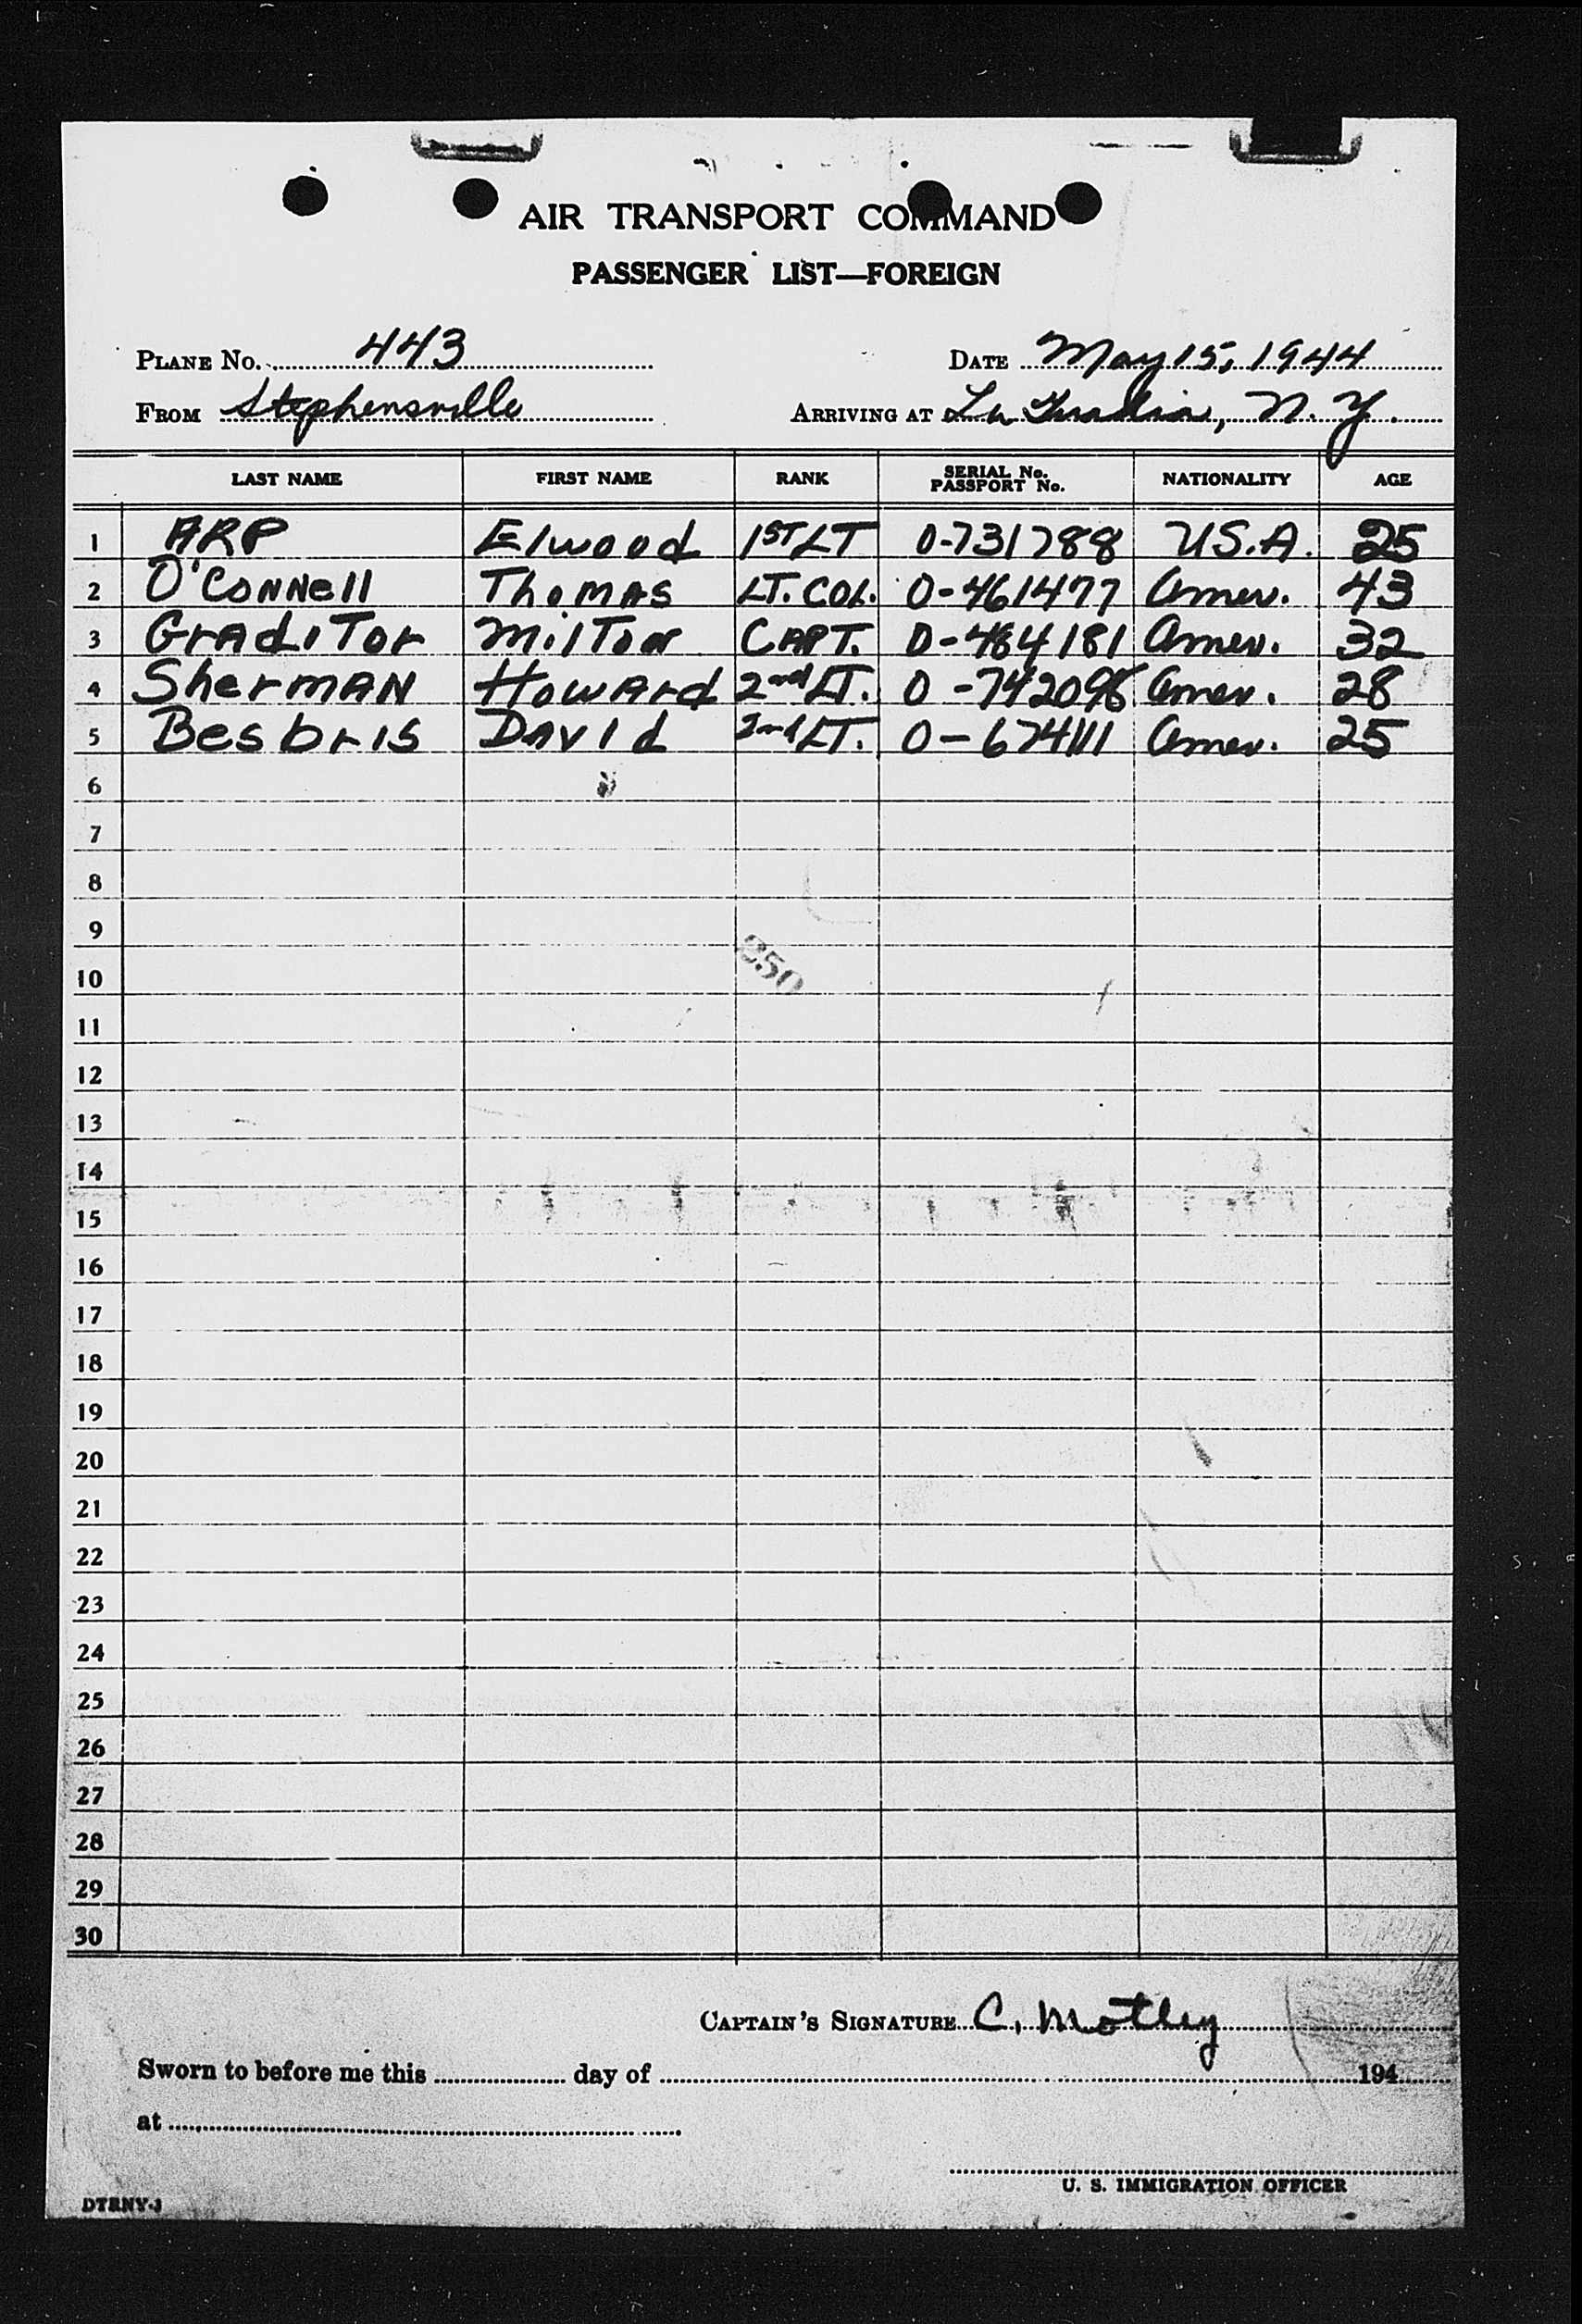 AIR TRANSPORT COMMAND
PASSENGER LIST—FOREIGN
PLANE No. 443 DATE May 15, 1944
FROM Stephensville ARRIVING AT La Guardia, N. Y.
LAST NAME FIRST NAME RANK SERIAL No. PASSPORT No. NATIONALITY AGE
1 ARP Elwood 1ST LT 0-731788 U.S.A. 25
2 O'CONNell THOMAS LT. COL. 0-461477 Amer. 43
3 GrAdiTor MilTon CAPT. 0-484181 Amer. 32
4 SherMAN HowArd 2nd LT. 0-742096 Amer. 28
5 Besbris DAvid 2nd LT. 0-674111 Amer. 25
6
7
8
9
250
10
11
12
13
14
15
16
17
18
19
20
21
22
23
24
25
26
27
28
29
30
CAPTAIN'S SIGNATURE C. Motley
Sworn to before me this day of 194
at
U. S. IMMIGRATION OFFICER
DTRNY-3